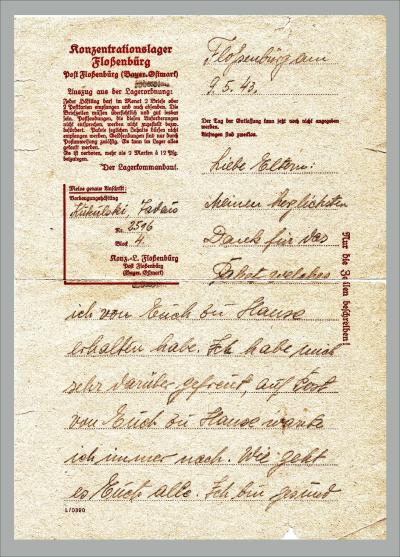 Konzentrationslager
Floßenbürg
Post Floßenbürg (Bayer. Ostmark)
Auszug aus der Lagerordnung:
Jeder Häftling darf im Monat 2 Briefe oder
2 Postkarten empfangen und auch absenden. Die
Briefzeilen müssen übersichtlich und gut lesbar
sein. Postsendungen, die diesen Anforderungen
nicht entsprechen, werden nicht zugestellt bezw.
befördert. Pakete jeglichen Inhalts dürfen nicht
empfangen werden. Geldsendungen sind nur durch
Postanweisung zulässig. Es kann im Lager alles
gekauft werden.
Es ist verboten, mehr als 2 Marken à 12 Pfg.
beizulegen.
Der Lagerkommandant.
Floßenbürg am
9.5.43.
Der Tag der Entlassung kann jetzt noch nicht angegeben
werden.
Anfragen sind zwecklos.
Meine genaue Anschrift:
Vorbeugungshäftling
Kukulski, Tadäus
Nr. 2596
Block 4.
Konz.-L. Floßenbürg
Post Floßenbürg
(Bayer. Ostmark)
Liebe Eltern:
Meinen Herzlichsten
Dank für das
Paket welches
Nur die Zeilen beschreiben!
ich von Euch zu Hause
erhalten habe. Ich habe mich
sehr darüber gefreut, auf Post
von Euch zu Hause warte
ich immer noch. Wie geht
es Euch alle. Ich bin gesund
L/0390